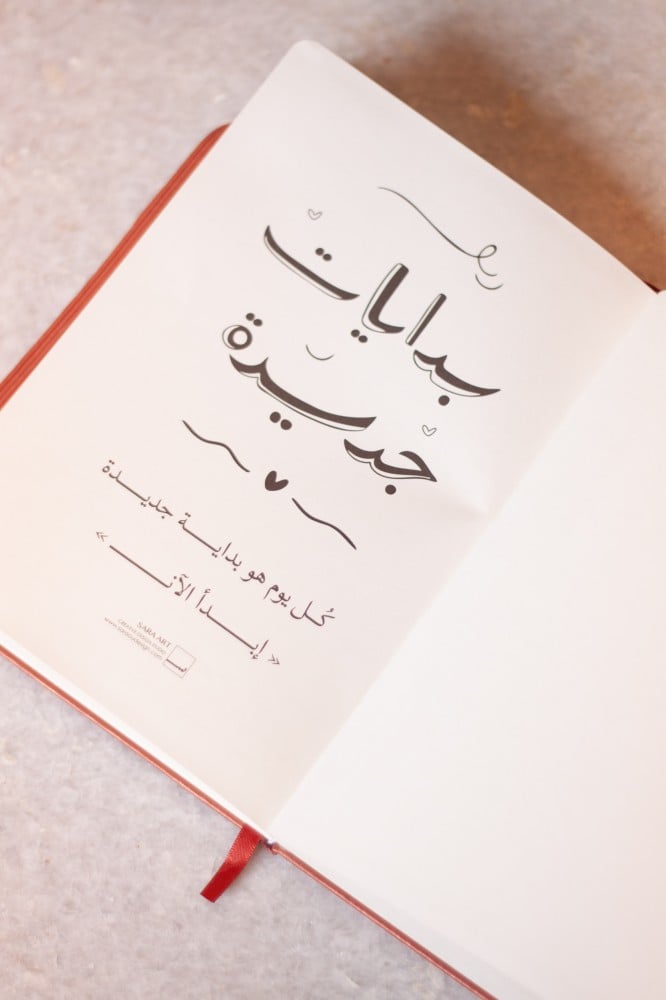 بدايات
جديدة
كُل يوم هو بداية جديدة
« إبدأ الآن »
SARA ART